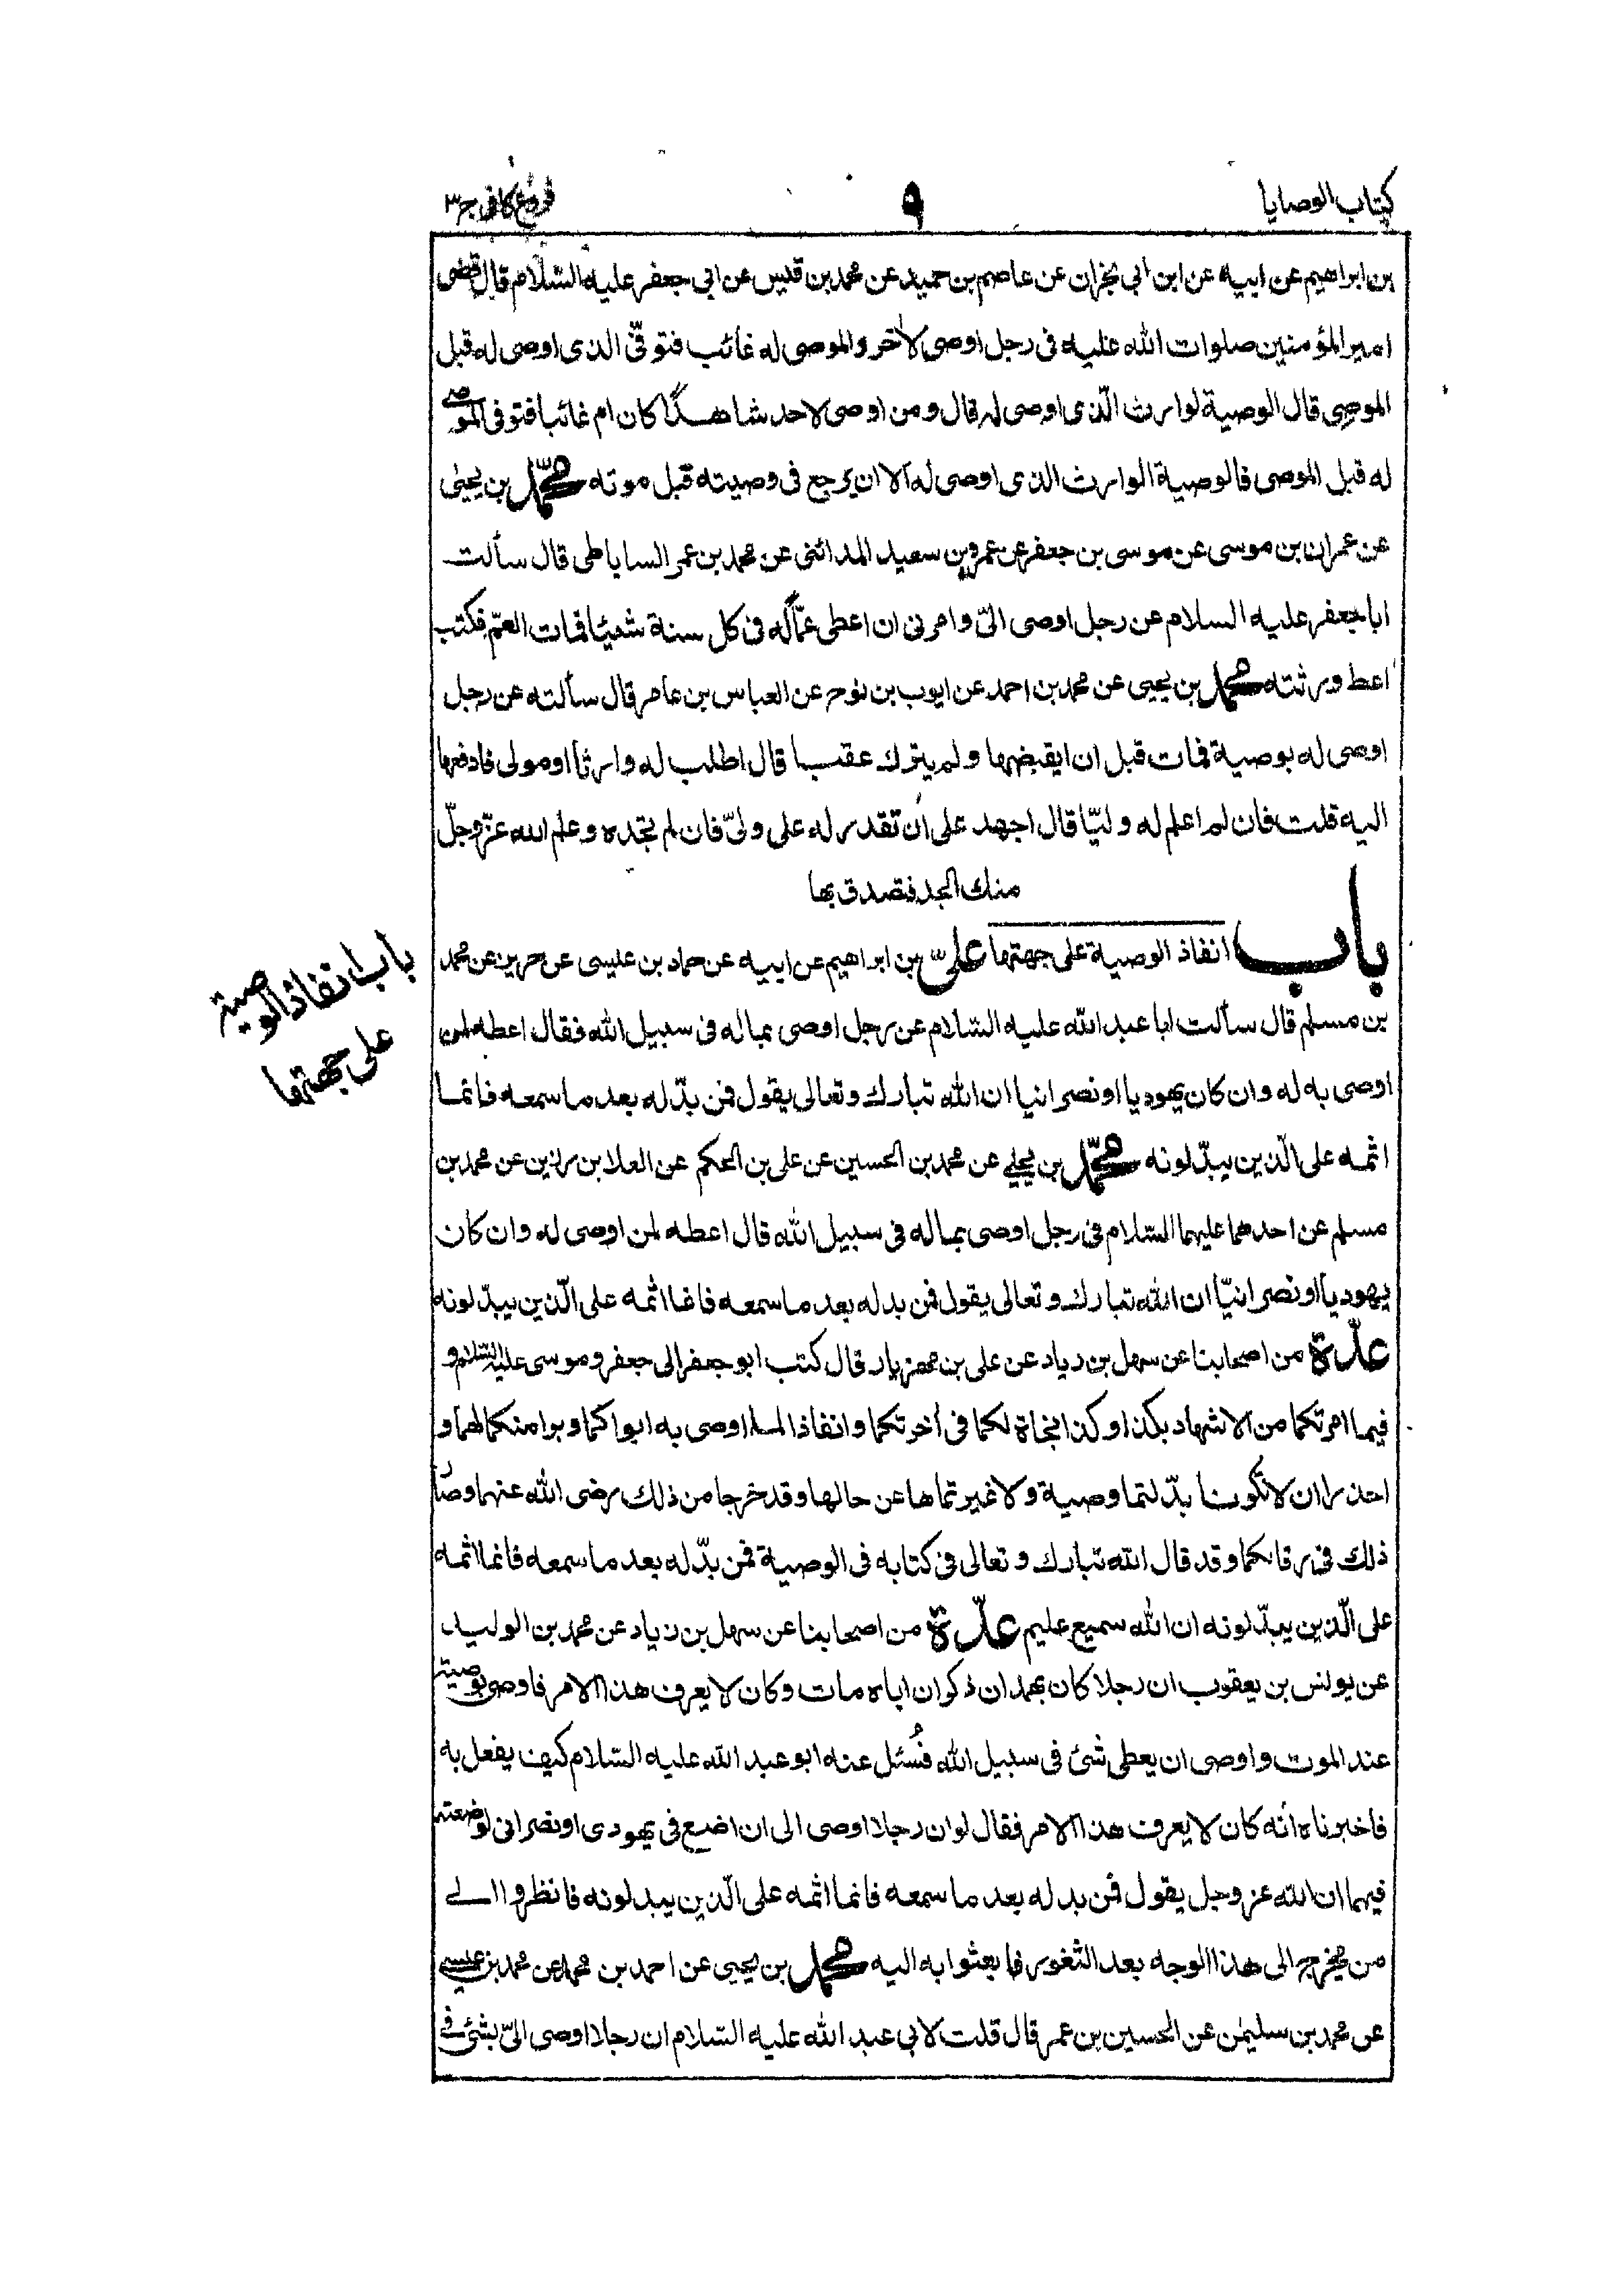 كتاب الوصايا ٩ فروع كافى ج٣
بن ابراهيم عن ابيه عن ابن ابى نجران عن عاصم بن حميد عن محمد بن قيس عن ابى جعفر عليه السّلام قال قضى
امير المؤمنين صلوات الله عليه فى رجل اوصى لاخر والموصى له غائب فتوفّى الذى اوصى له قبل
الموصى قال الوصية لوارث الّذى اوصى له قال ومن اوصى لاحد شاهدًا كان ام غائبا فتوفى الموصى
له قبل الموصى فالوصية الوارث الذى اوصى له الا ان يرجع فى وصيته قبل موته محمّد بن يحيى
عن عمران بن موسى عن موسى بن جعفر عن عمرو بن سعيد المدائنى عن محمد بن عمر الساباطى قال سألت
ابا جعفر عليه السلام عن رجل اوصى الىّ وامرنى ان اعطى عمّا له فى كل سنة شيئا فمات العمّ فكتب
اعط ورثته محمد بن يحيى عن محمد بن احمد عن ايوب بن نوح عن العباس بن عامر قال سألته عن رجل
اوصى له بوصية فمات قبل ان يقبضها ولم يترك عقبا قال اطلب له وارثا او مولى فادفعها
اليه قلت فان لم اعلم له وليّا قال اجهد على ان تقدر له على ولىّ فان لم تجده وعلم الله عزّ وجلّ
منك الجد فتصدق بها
باب انفاذ الوصية على جهتها علىّ بن ابراهيم عن ابيه عن حماد بن عيسى عن حريز عن محمد
باب انفاذ الوصية
على جهتها
بن مسلم قال سألت ابا عبد الله عليه السّلام عن رجل اوصى بماله فى سبيل الله فقال اعطه لمن
اوصى به له وان كان يهوديا او نصرانيا ان الله تبارك وتعالى يقول فمن بدّله بعد ما سمعه فانما
اثمه على الّذين يبدّلونه محمّد بن يحيى عن محمد بن الحسين عن على بن الحكم عن العلا بن رزين عن محمد بن
مسلم عن احدهما عليهما السّلام فى رجل اوصى بماله فى سبيل الله قال اعطه لمن اوصى له وان كان
يهوديا او نصرانيّا ان الله تبارك وتعالى يقول فمن بدله بعد ما سمعه فانما اثمه على الّذين يبدّلونه
عدّة من اصحابنا عن سهل بن زياد عن على بن مهزيار قال كتب ابو جعفر الى جعفر وموسى عليه السّلام و
فيما امرتكما من الاشهاد بكذا وكذا نجاة لكما فى أخرتكما وانفاذا لما اوصى به ابواكما وبرا منكما لهما و
احذرا ان لا تكونا بدّلتما وصية ولا غيرتماها عن حالها وقد خرجا من ذلك رضى الله عنهما وصار
ذلك فى رقابكما وقد قال الله تبارك وتعالى فى كتابه فى الوصية فمن بدّله بعد ما سمعه فانما اثمه
على الّذين يبدّلونه ان الله سميع عليم عدّة من اصحابنا عن سهل بن زياد عن محمد بن الوليد
عن يونس بن يعقوب ان رجلا كان بهمدان ذكر ان اباه مات وكان لا يعرف هذا الامر فاوصى بوصية
عند الموت واوصى ان يعطى شئ فى سبيل الله فسُئل عنه ابو عبد الله عليه السّلام كيف يفعل به
فاخبرناه أنه كان لا يعرف هذا الامر فقال لو ان رجلا اوصى الى ان اضع فى يهودى او نصرانى لوضعته
فيهما ان الله عز وجل يقول فمن بدله بعد ما سمعه فانما اثمه على الّذين يبدلونه فانظروا الى
من يخرج الى هذا الوجه بعد الثغور فابعثوا به اليه محمد بن يحيى عن احمد بن محمد عن محمد بن عيسى
عن محمد بن سليمٰن عن الحسين بن عمر قال قلت لابى عبد الله عليه السّلام ان رجلا اوصى الىّ بشئ فى